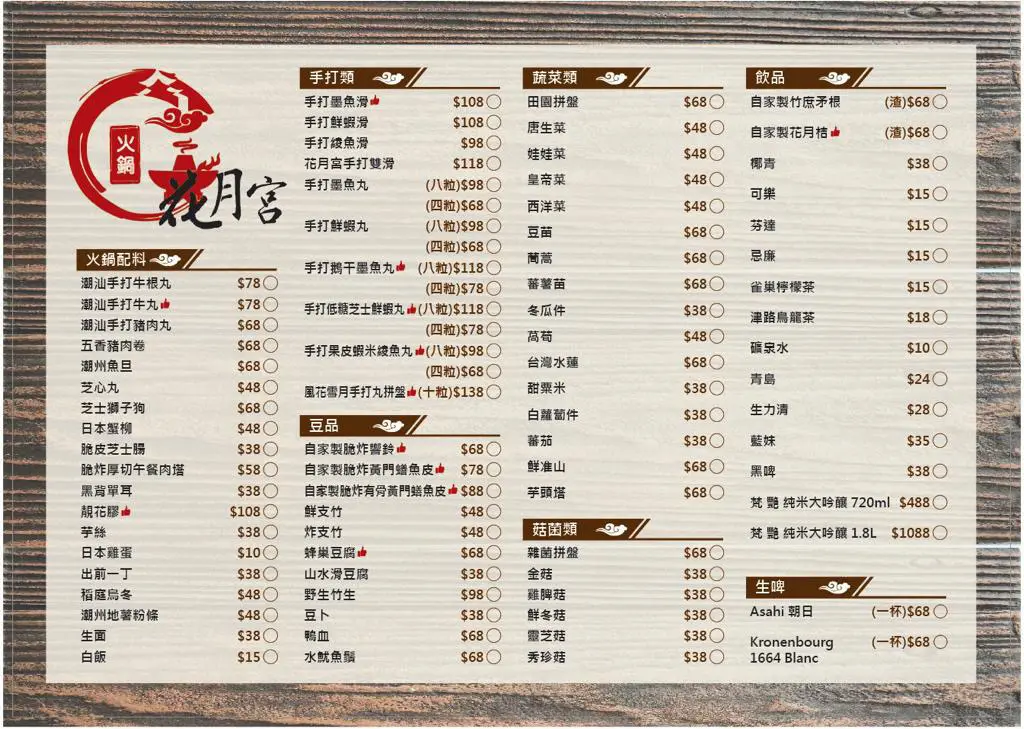 火鍋
花月宮
火鍋配料
潮汕手打牛根丸 $78
潮汕手打牛丸 $78
潮汕手打豬肉丸 $68
五香豬肉卷 $68
潮州魚旦 $68
芝心丸 $48
芝士獅子狗 $68
日本蟹柳 $48
脆皮芝士腸 $38
脆炸厚切午餐肉塔 $58
黑背單耳 $38
靚花膠 $108
芋絲 $38
日本雞蛋 $10
出前一丁 $38
稻庭烏冬 $48
潮州地薯粉條 $48
生面 $38
白飯 $15
手打類
手打墨魚滑 $108
手打鮮蝦滑 $108
手打綾魚滑 $98
花月宮手打雙滑 $118
手打墨魚丸 (八粒)$98
(四粒)$68
手打鮮蝦丸 (八粒)$98
(四粒)$68
手打鵝干墨魚丸 (八粒)$118
(四粒)$78
手打低糖芝士鮮蝦丸 (八粒)$118
(四粒)$78
手打果皮蝦米綾魚丸 (八粒)$98
(四粒)$68
風花雪月手打丸拼盤 (十粒)$138
豆品
自家製脆炸響鈴 $68
自家製脆炸黃門鱔魚皮 $78
自家製脆炸有骨黃門鱔魚皮 $88
鮮支竹 $48
炸支竹 $48
蜂巢豆腐 $68
山水滑豆腐 $38
野生竹生 $98
豆卜 $38
鴨血 $68
水魷魚鬚 $68
蔬菜類
田園拼盤 $68
唐生菜 $48
娃娃菜 $48
皇帝菜 $48
西洋菜 $48
豆苗 $68
茼蒿 $68
蕃薯苗 $68
冬瓜件 $38
萵荀 $48
台灣水蓮 $68
甜粟米 $38
白蘿蔔件 $38
蕃茄 $38
鮮准山 $68
芋頭塔 $68
菇菌類
雜菌拼盤 $68
金菇 $38
雞脾菇 $38
鮮冬菇 $38
靈芝菇 $38
秀珍菇 $38
飲品
自家製竹庶矛根 (渣)$68
自家製花月桔 (渣)$68
椰青 $38
可樂 $15
芬達 $15
忌廉 $15
雀巢檸檬茶 $15
津路烏龍茶 $18
礦泉水 $10
青島 $24
生力清 $28
藍妹 $35
黑啤 $38
梵 艷 純米大吟釀 720ml $488
梵 艷 純米大吟釀 1.8L $1088
生啤
Asahi 朝日 (一杯)$68
Kronenbourg (一杯)$68
1664 Blanc